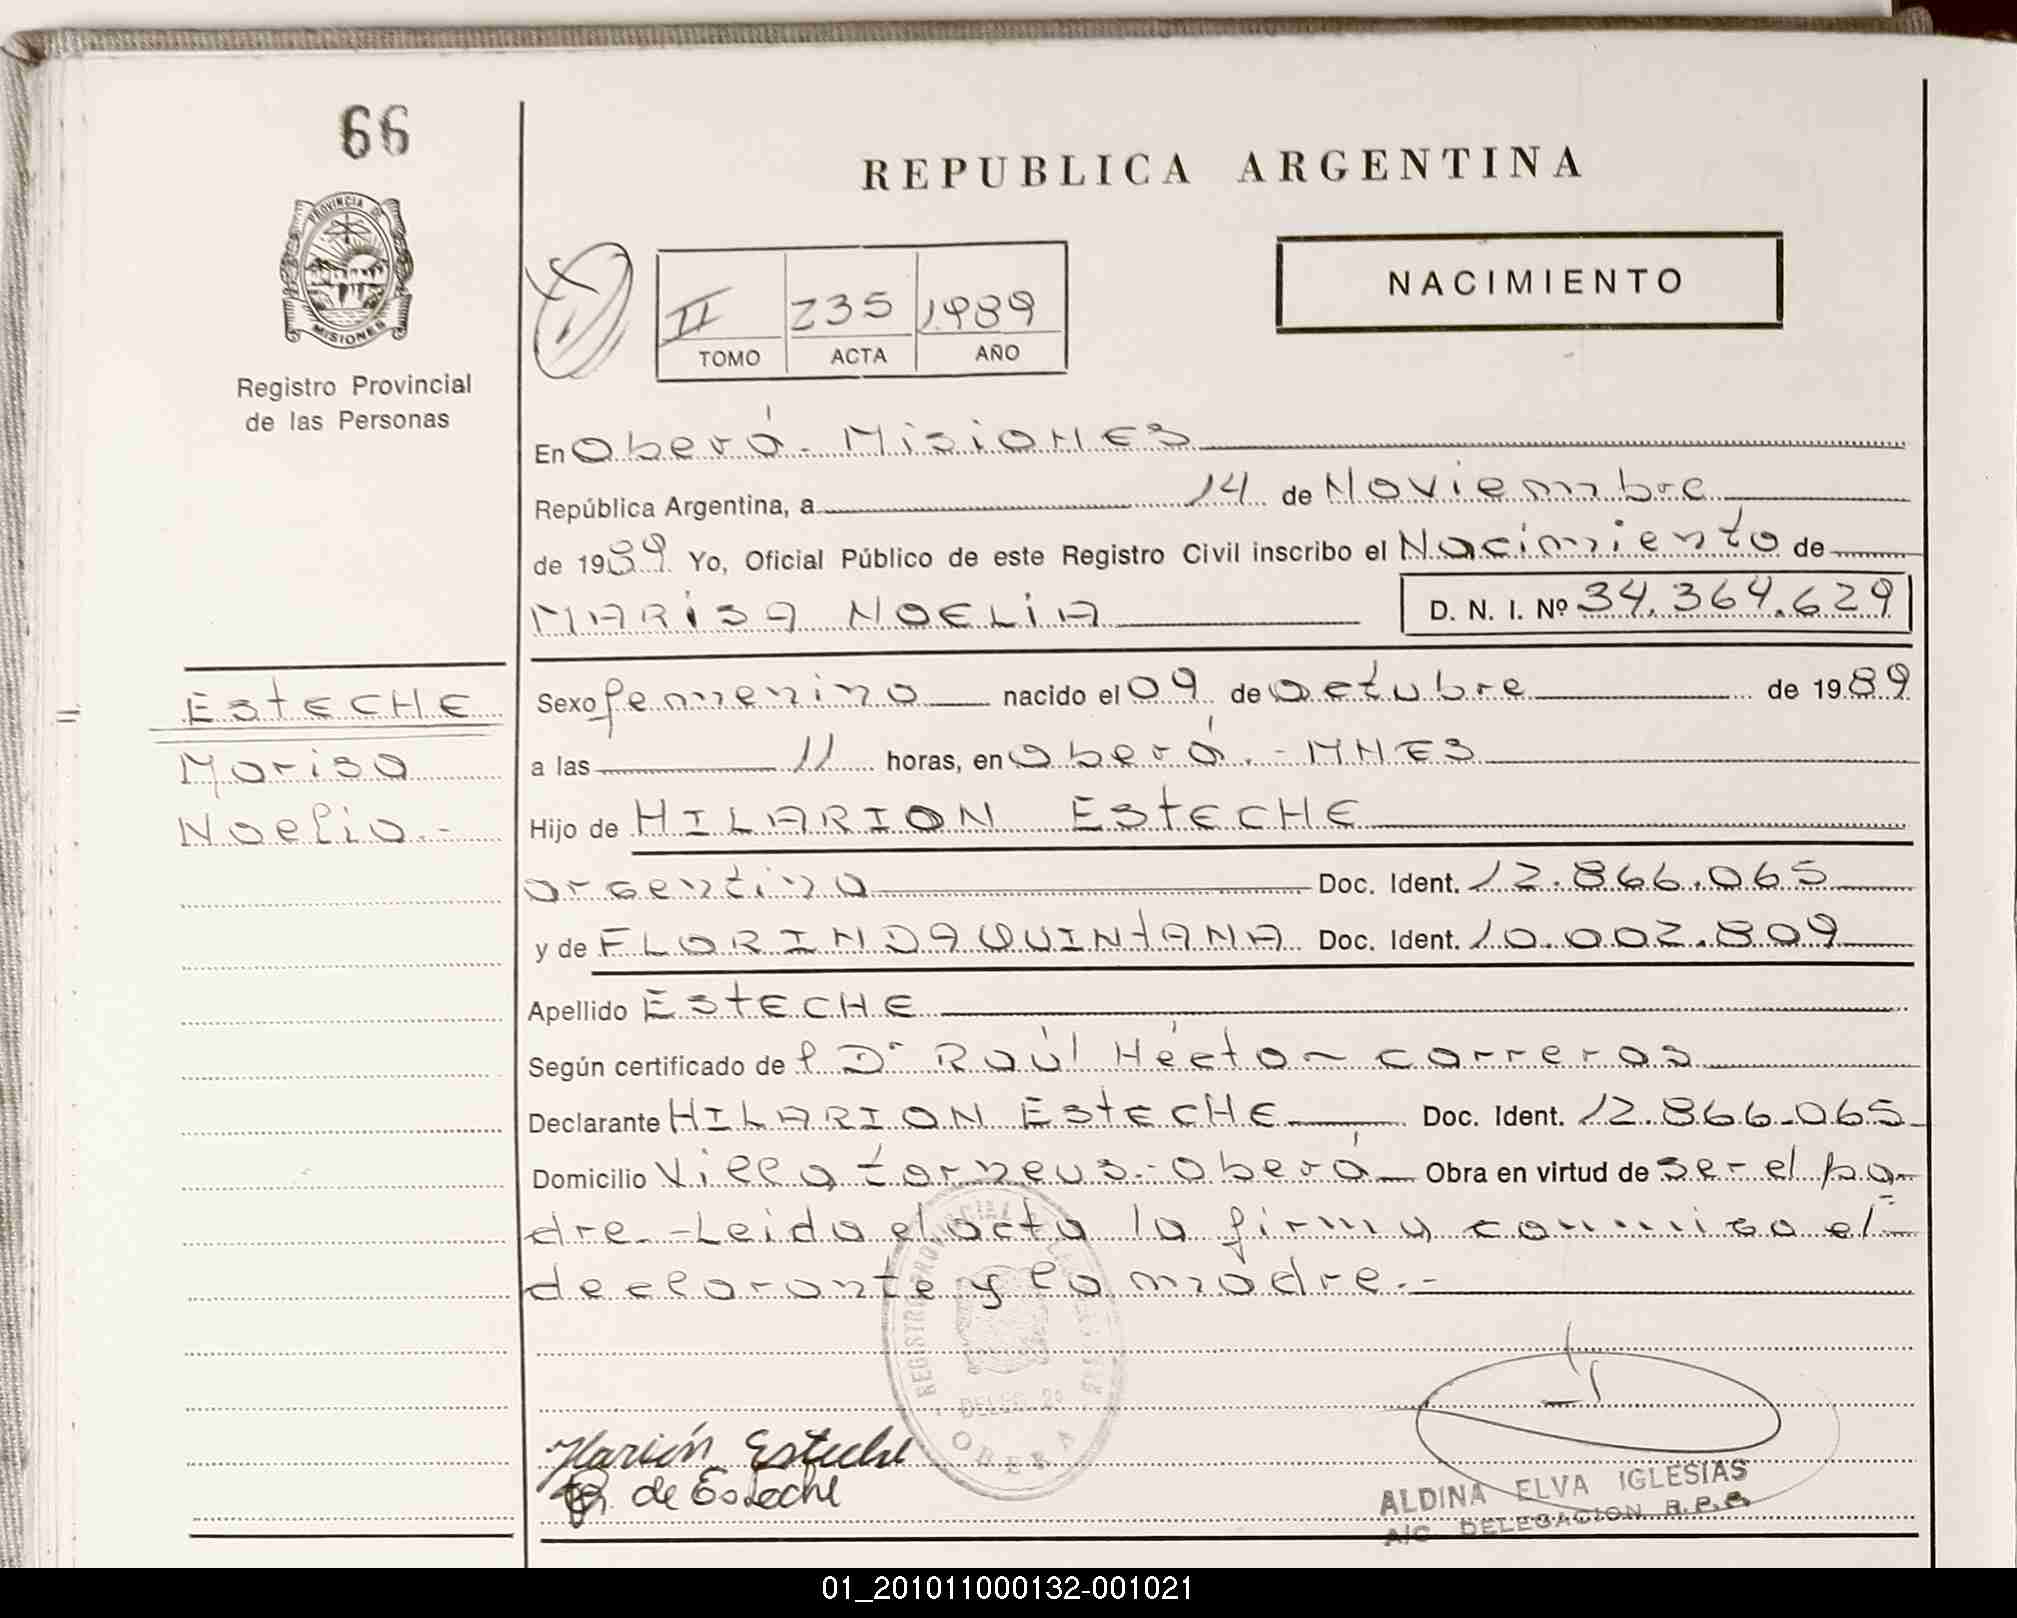 66
PROVINCIA DE
MISIONES
Registro Provincial
de las Personas
REPUBLICA ARGENTINA
II 235 1989
TOMO ACTA AÑO
NACIMIENTO
En Oberá - Misiones
República Argentina, a 14 de Noviembre
de 1989 Yo, Oficial Público de este Registro Civil inscribo el Nacimiento de
MARISA NOELIA D. N. I. Nº 34.364.629
ESTECHE
Marisa
Noelia.-
Sexo femenino nacido el 09 de octubre de 1989
a las 11 horas, en Oberá.- MNES
Hijo de HILARION ESTECHE
argentino Doc. Ident. 12.866.065
y de FLORINDA QUINTANA Doc. Ident. 10.002.809
Apellido ESTECHE
Según certificado de l Dr Raúl Héctor Carreras
Declarante HILARION ESTECHE Doc. Ident. 12.866.065
Domicilio Villa torneus.- Oberá Obra en virtud de ser el pa-
dre.- Leida el acta la firma conmigo el
declarante y la madre.-
OBERA
Ilarión Esteche
de Esteche
ALDINA ELVA IGLESIAS
A/C DELEGACION R.P.P.
01_201011000132-001021